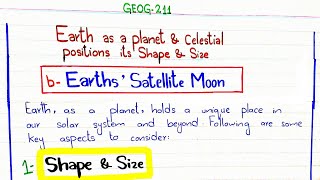 GEOG-211
Earth as a planet & Celestial
positions its Shape & Size
b- Earths' Satellite Moon
Earth, as a planet, holds a unique place in
our solar system and beyond Following are some
key aspects to consider:
1- Shape & Size